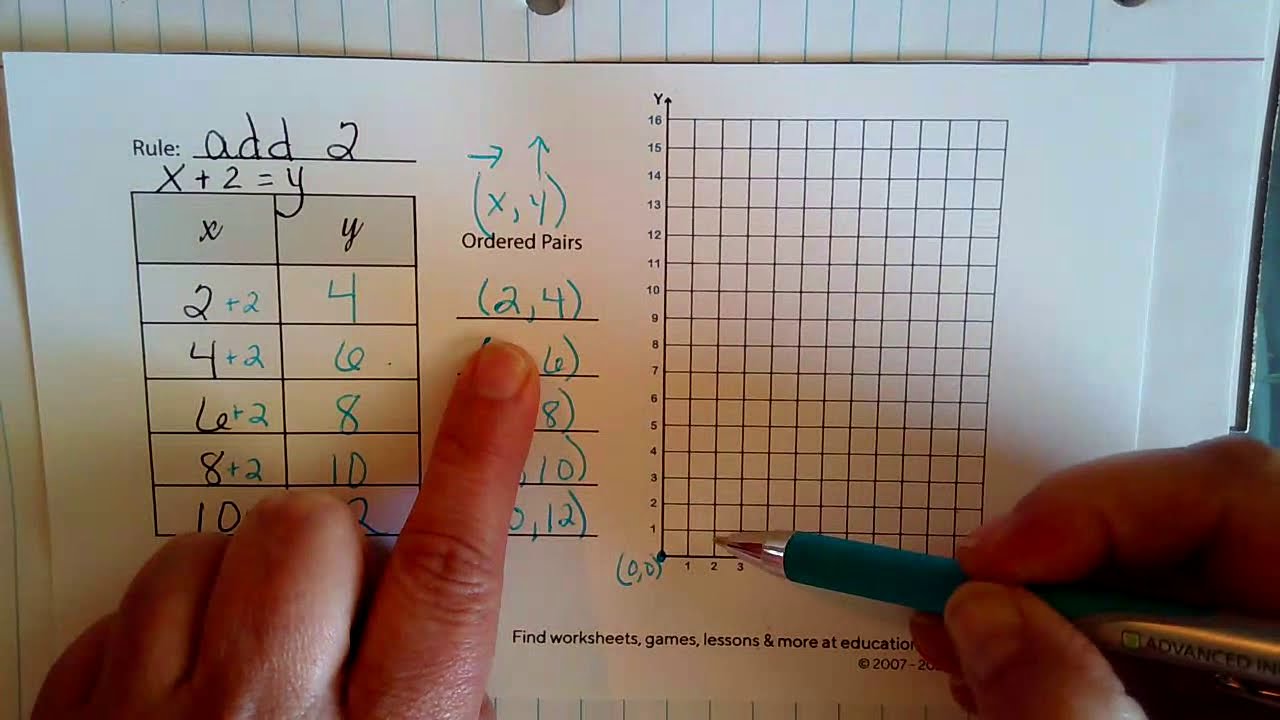 Rule: add 2
x + 2 = y
x y
2 +2 4
4 +2 6
6 +2 8
8 +2 10
10
→ ↑
(x, y)
Ordered Pairs
(2, 4)
6)
8)
, 10)
, 12)
Y
16
15
14
13
12
11
10
9
8
7
6
5
4
3
2
1
(0,0) 1 2 3
Find worksheets, games, lessons & more at
© 2007-
ADVANCED